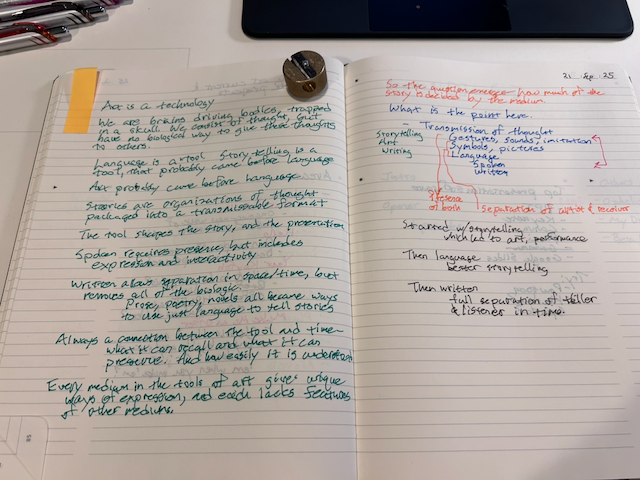 Art is a technology
We are brains driving bodies, trapped
in a skull. We consist of thought, but
have no biological way to give these thoughts
to others.
Language is a tool. Story telling is a
tool, that probably came before language
Art probably came before language
Stories are organizations of thought
packaged into a transmissable format
The tool shapes the story, and the presentation
Spoken requires presence, but includes
expression and interactivity
Written allows separation in space/time, but
removes all of the biologic.
Prose, poetry, novels all became ways
to use just language to tell stories
Always a connection between the tool and time—
what it can recall and what it can
preserve. And how easily it is understood
Every medium in the tools of art gives unique
ways of expression, and each lacks features
of other mediums.
21 Sep 25
So the question emerges how much of the
story is decided by the medium.
What is the point here.
Transmission of thought
Storytelling
Art
Writing
Gestures, sounds, imitation
Symbols, pictures
Language
Spoken
Written
Presence
of both
Separation of artist & receiver
Started w/storytelling
which led to art, performance
Then language
better storytelling
Then written
full separation of teller
& listener in time.